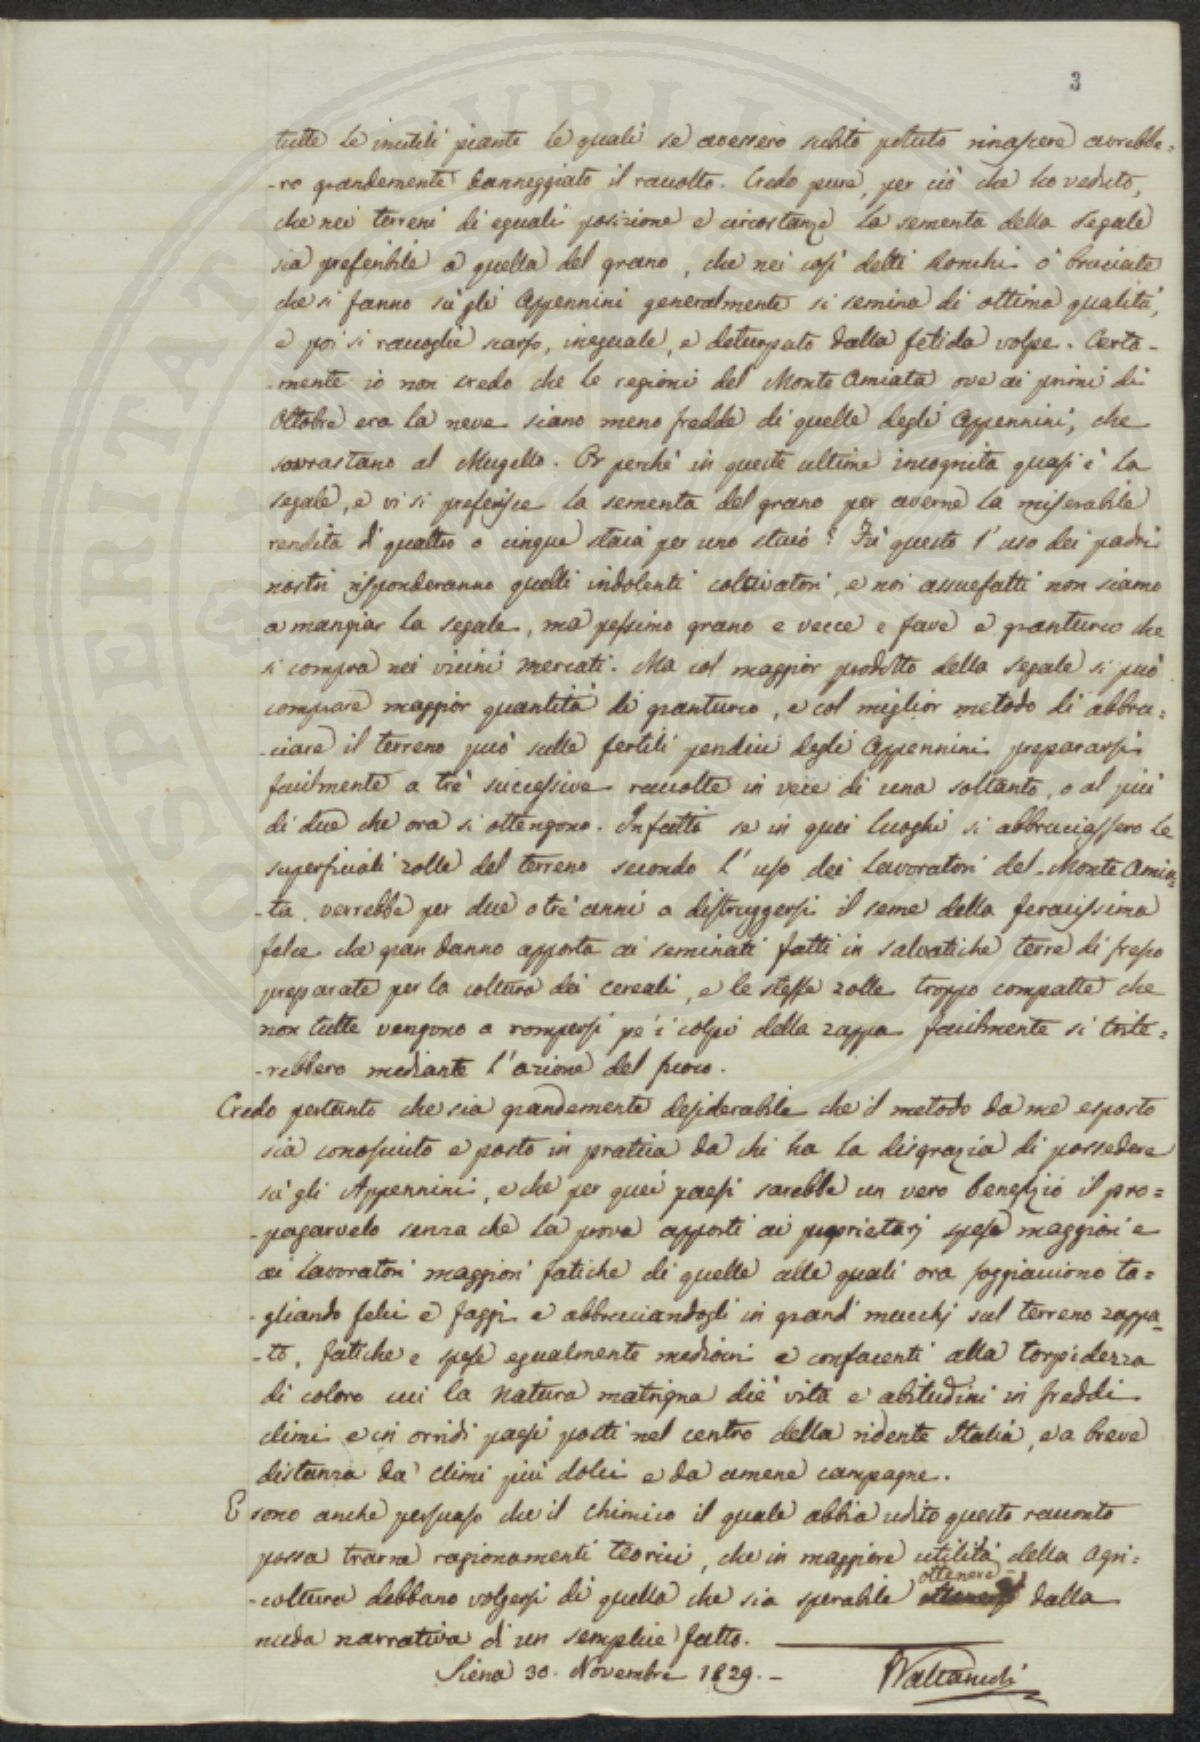 3
tutte le inutili piante le quali se avessero subito potuto rinascere avrebbe=
-ro grandemente danneggiato il raccolto. Credo pure, per ciò che ho veduto,
che nei terreni di eguali posizione e circostanze la sementa della segale
sia preferibile a quella del grano, che nei così detti Ronchi o bruciate
che si fanno sù gli Appennini generalmente si semina di ottima qualità,
e poi si raccoglie scarso, ineguale, e deturpato dalla fetida volpe. Certa-
-mente io non credo che le regioni del Monte Amiata ove ai primi di
Ottobre era la neve siano meno fredde di quelle degli Appennini, che
sovrastano al Mugello. Or perchè in queste ultime incognita quasi è la
segale, e vi si preferisce la sementa del grano per averne la miserabile
rendita di quattro o cinque staia per uno staio? Fù questo l'uso dei padri
nostri risponderanno quelli indolenti coltivatori, e noi assuefatti non siamo
a mangiar la segale, ma pessimo grano e vecce e fave e granturco che
si compra nei vicini mercati. Ma col maggior prodotto della segale si può
comprare maggior quantità di granturco, e col miglior metodo di abbru=
-ciare il terreno può sulle fertili pendici degli Appennini prepararsi
facilmente a trè successive raccolte in vece di una soltanto, o al più
di due che ora si ottengono. Infatti se in quei luoghi si abbruciassero le
superficiali zolle del terreno secondo l'uso dei Lavoratori del Monte Amia=
-ta, verrebbe per due o trè anni a distruggersi il seme della feracissima
felce che gran danno apporta ai seminati fatti in salvatiche terre di fresco
preparate per la coltura dei cereali, e le stesse zolle troppo compatte che
non tutte vengono a rompersi pe' i colpi della zappa facilmente si trite=
-rebbero mediante l'azione del fuoco.
Credo pertanto che sia grandemente desiderabile che il metodo da me esposto
sia conosciuto e posto in pratica da chi ha la disgrazia di possedere
sù gli Appennini, e che per quei paesi sarebbe un vero benefizio il pro=
-pagarvelo senza che la prova apporti ai proprietarj spese maggiori e
ai Lavoratori maggiori fatiche di quelle alle quali ora soggiacciono ta=
-gliando felci e faggi e abbruciandogli in grandi mucchj sul terreno zappa=
-to, fatiche e spese egualmente mediocri e confacenti alla torpidezza
di coloro cui la Natura matrigna diè vita e abitudini in freddi
climi e in orridi paesi posti nel centro della ridente Italia, e a breve
distanza da' climi più dolci e da amene campagne.
E sono anche persuaso che il Chimico il quale abbia udito questo racconto
possa trarne ragionamenti teorici, che in maggiore utilità della Agri=
-coltura debbano volgersi di quella che sia sperabile ottenere dalla
nuda narrativa di un semplice fatto.
Siena 30. Novembre 1829. -